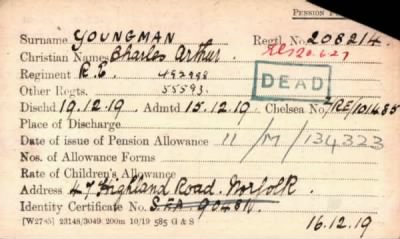 PENSION
Surname YOUNGMAN Regtl. No. 208214.
Christian Names Charles Arthur.
Regiment R.E. 492998
DEAD
Other Regts. 55593.
Dischd 19.12.19 Admtd 15.12.19 Chelsea No. 7RE/101485
Place of Discharge
Date of issue of Pension Allowance 11/M/134323
Nos. of Allowance Forms
Rate of Children's Allowance
Address 47 Highland Road. Norfolk.
Identity Certificate No. 
[W2785] 23148/3049 200m 10/19 585 G & S 16.12.19